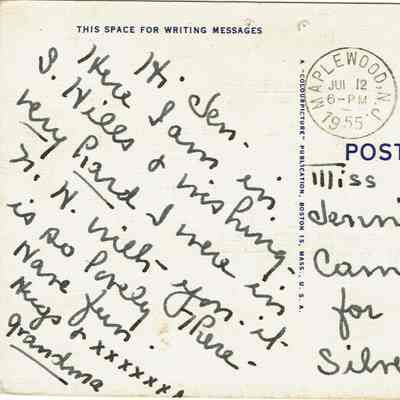 THIS SPACE FOR WRITING MESSAGES
Hi Jen.
Here I am in
S. Hills & wishing
very hard I were in
N. H. with you. it
is so lovely there-
Have fun.
Hugs & xxxxxxx
Grandma
A "COLOURPICTURE" PUBLICATION, BOSTON 15, MASS., U. S. A.
MAPLEWOOD, N.J.
JUL 12
6-PM
1955
POST
Miss
Jenni
Cam
for
Silve